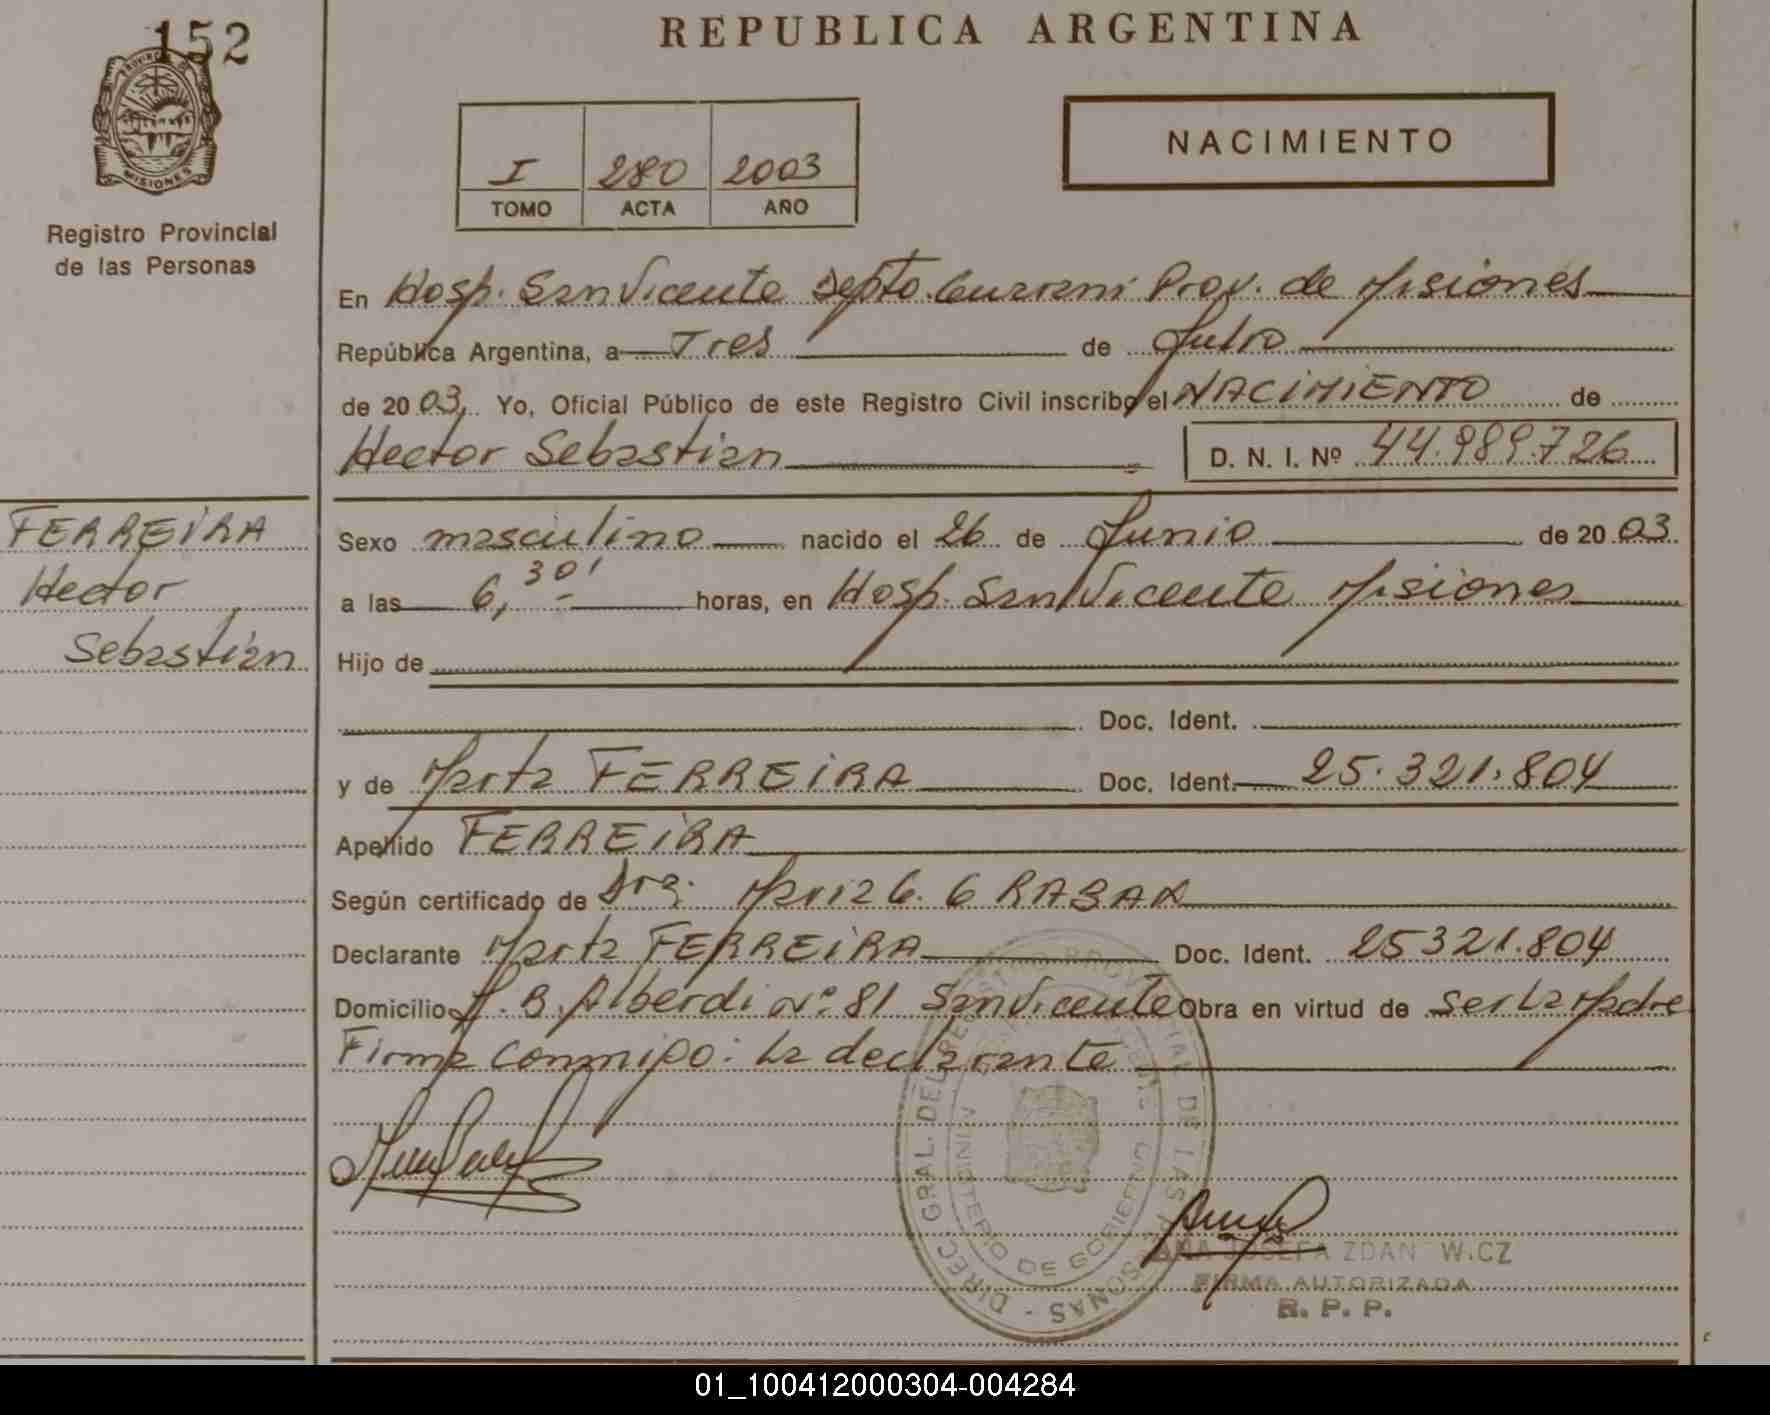 152
PROVINCIA DE
MISIONES
Registro Provincial
de las Personas
REPUBLICA ARGENTINA
I 280 2003
TOMO ACTA AÑO
NACIMIENTO
En Hosp. San Vicente Depto. Guarani Prov. de Misiones
República Argentina, a Tres de Julio
de 2003, Yo, Oficial Público de este Registro Civil inscribo el NACIMIENTO de
Hector Sebastian D. N. I. Nº 44.989.726
FERREIRA
Hector
Sebastián
Sexo masculino nacido el 26 de Junio de 2003
a las 6,30' horas, en Hosp. San Vicente Misiones
Hijo de
Doc. Ident.
y de Marta FERREIRA Doc. Ident. 25.321.804
Apellido FERREIRA
Según certificado de Dra. Maria G. GRABAN
Declarante Marta FERREIRA Doc. Ident. 25321.804
Domicilio J. B. Alberdi Nº 81 San Vicente Obra en virtud de ser La Madre
Firma conmigo: La declarante
DIREC. GRAL. DEL REGISTRO PROVINCIAL DE LAS PERSONAS -
MINISTERIO DE GOBIERNO
ANA JOSEFA ZDAN W.CZ
FIRMA AUTORIZADA
R. P. P.
01_100412000304-004284